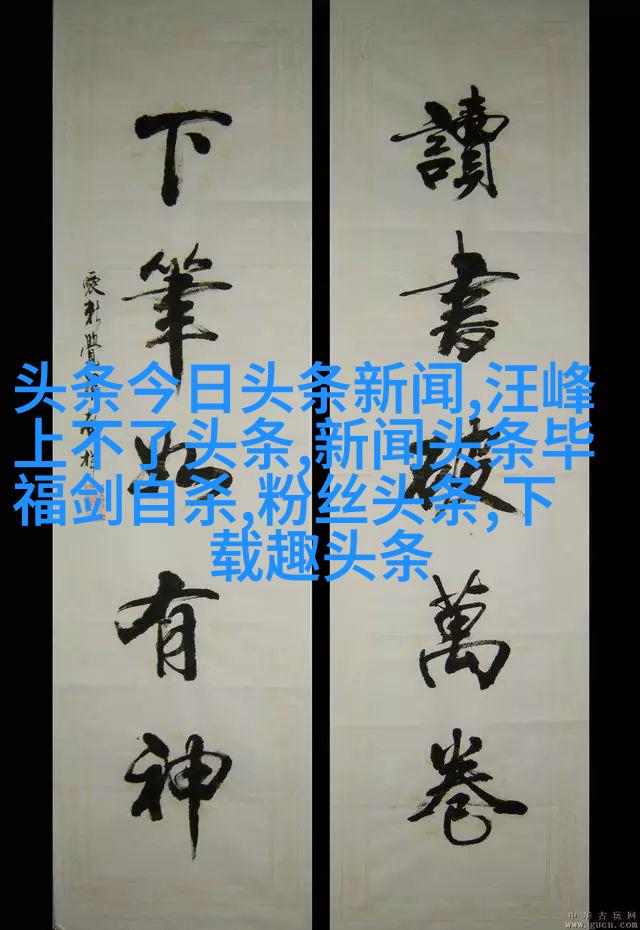 讀書破萬卷
下筆如有神
头条今日头条新闻,汪峰
上不了头条,新闻头条毕
福剑自杀,粉丝头条,下
载趣头条
中华古玩网
www.gucn.com